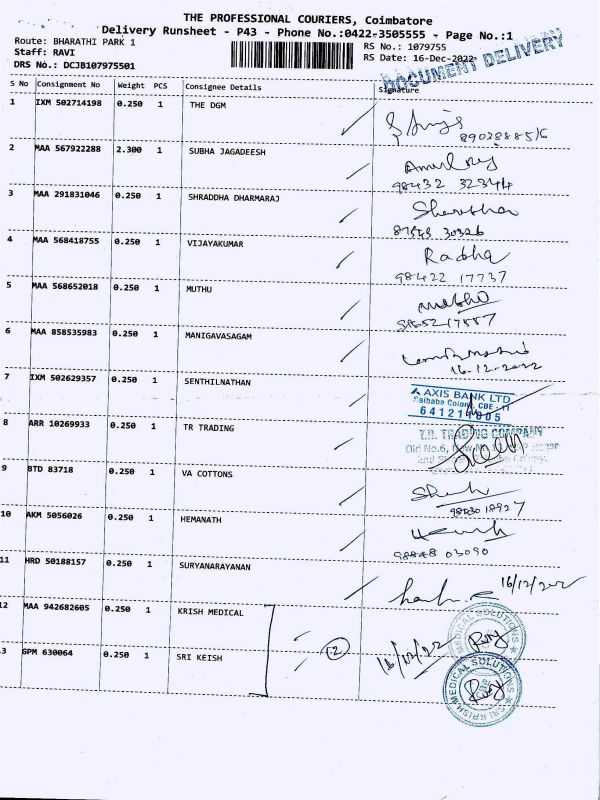 THE PROFESSIONAL COURIERS, Coimbatore
Delivery Runsheet - P43 - Phone No.:0422-3505555 - Page No.:1
Route: BHARATHI PARK 1
RS No.: 1079755
Staff: RAVI
RS Date: 16-Dec-2022
DRS No.: DCJB107975501
DOCUMENT DELIVERY
S No Consignment No Weight PCS Consignee Details Signature
1 IXM 502714198 0.250 1 THE DGM
2 MAA 567922288 2.300 1 SUBHA JAGADEESH
98432 32344
3 MAA 291831046 0.250 1 SHRADDHA DHARMARAJ
4 MAA 568418755 0.250 1 VIJAYAKUMAR
Radha
98422 17737
5 MAA 568652018 0.250 1 MUTHU
6 MAA 858535983 0.250 1 MANIGAVASAGAM
16-12-2022
7 IXM 502629357 0.250 1 SENTHILNATHAN
AXIS BANK LTD
Saibaba Colony, CBE - 11
8 ARR 10269933 0.250 1 TR TRADING
T.R. TRADING COMPANY
Old No.6,
9 BTD 83718 0.250 1 VA COTTONS
10 AKM 5056026 0.250 1 HEMANATH
98848 03090
11 HRD 50188157 0.250 1 SURYANARAYANAN
16/12/202
12 MAA 942682605 0.250 1 KRISH MEDICAL
MEDICAL SOLUTIONS
2
16/12/22
3 GPM 630064 0.250 1 SRI KEISH
SRI KRISH MEDICAL SOLUTIONS